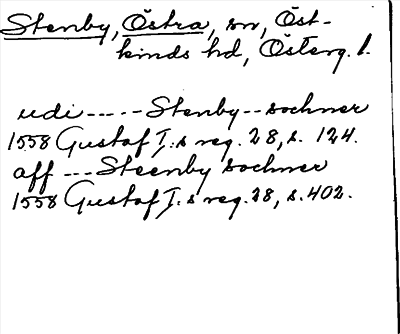 Stenby, Östra, sn, Öst-
kinds hd, Österg. l.
udi ----- Stenby -- sochner
1558 Gustaf I:s reg. 28, s. 124.
aff --- Steenby sochner
1558 Gustaf I:s reg. 28, s. 402.